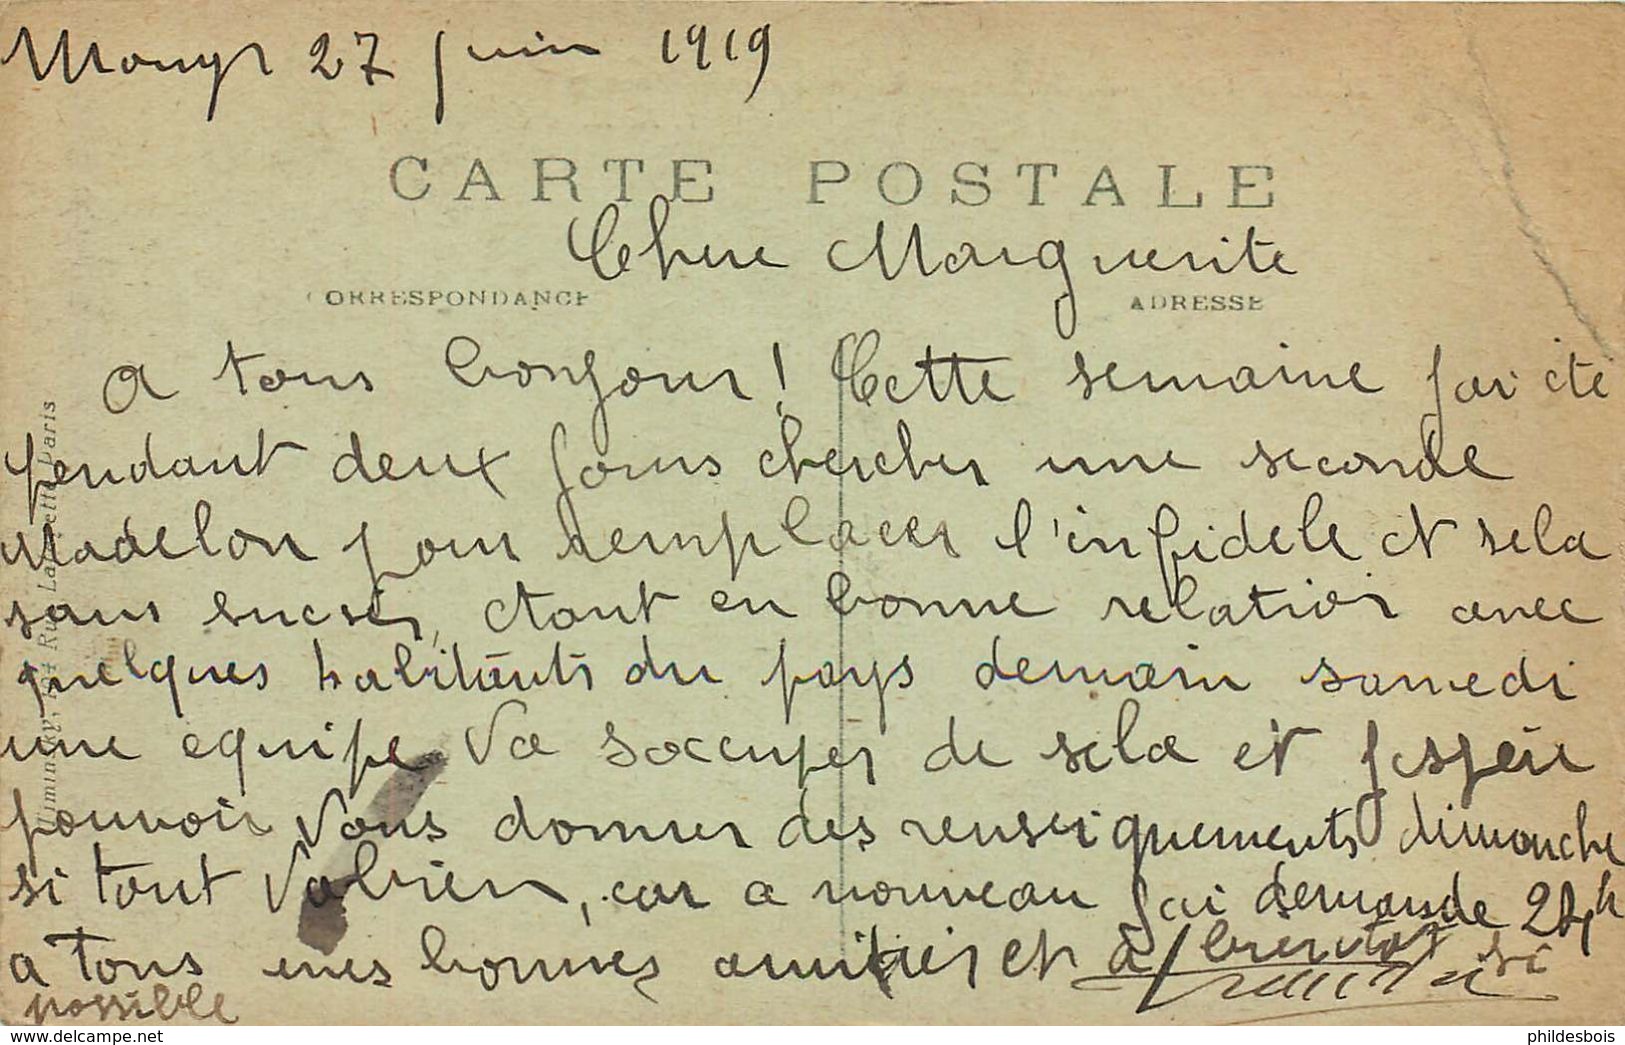 Mouy 27 Juin 1919
CARTE POSTALE
Chere Marguerite
CORRESPONDANCE ADRESSE
A tous bonjour ! Cette semaine j'ai été
pendant deux jours chercher une seconde
Madelon pour remplacer l'infidele et sela
sans succés, étant en bonne relation avec
quelques habitants du pays demain samedi
une equipe va s'occuper de sela et j'espére
pouvoir vous donner des renseignements dimanche
si tout va bien, car a nouveau j'ai demande 24h
a tous mes bonnes amitiés et à bientot si
possible
Rue Lafayette Paris
www.delcampe.net
phildesbois